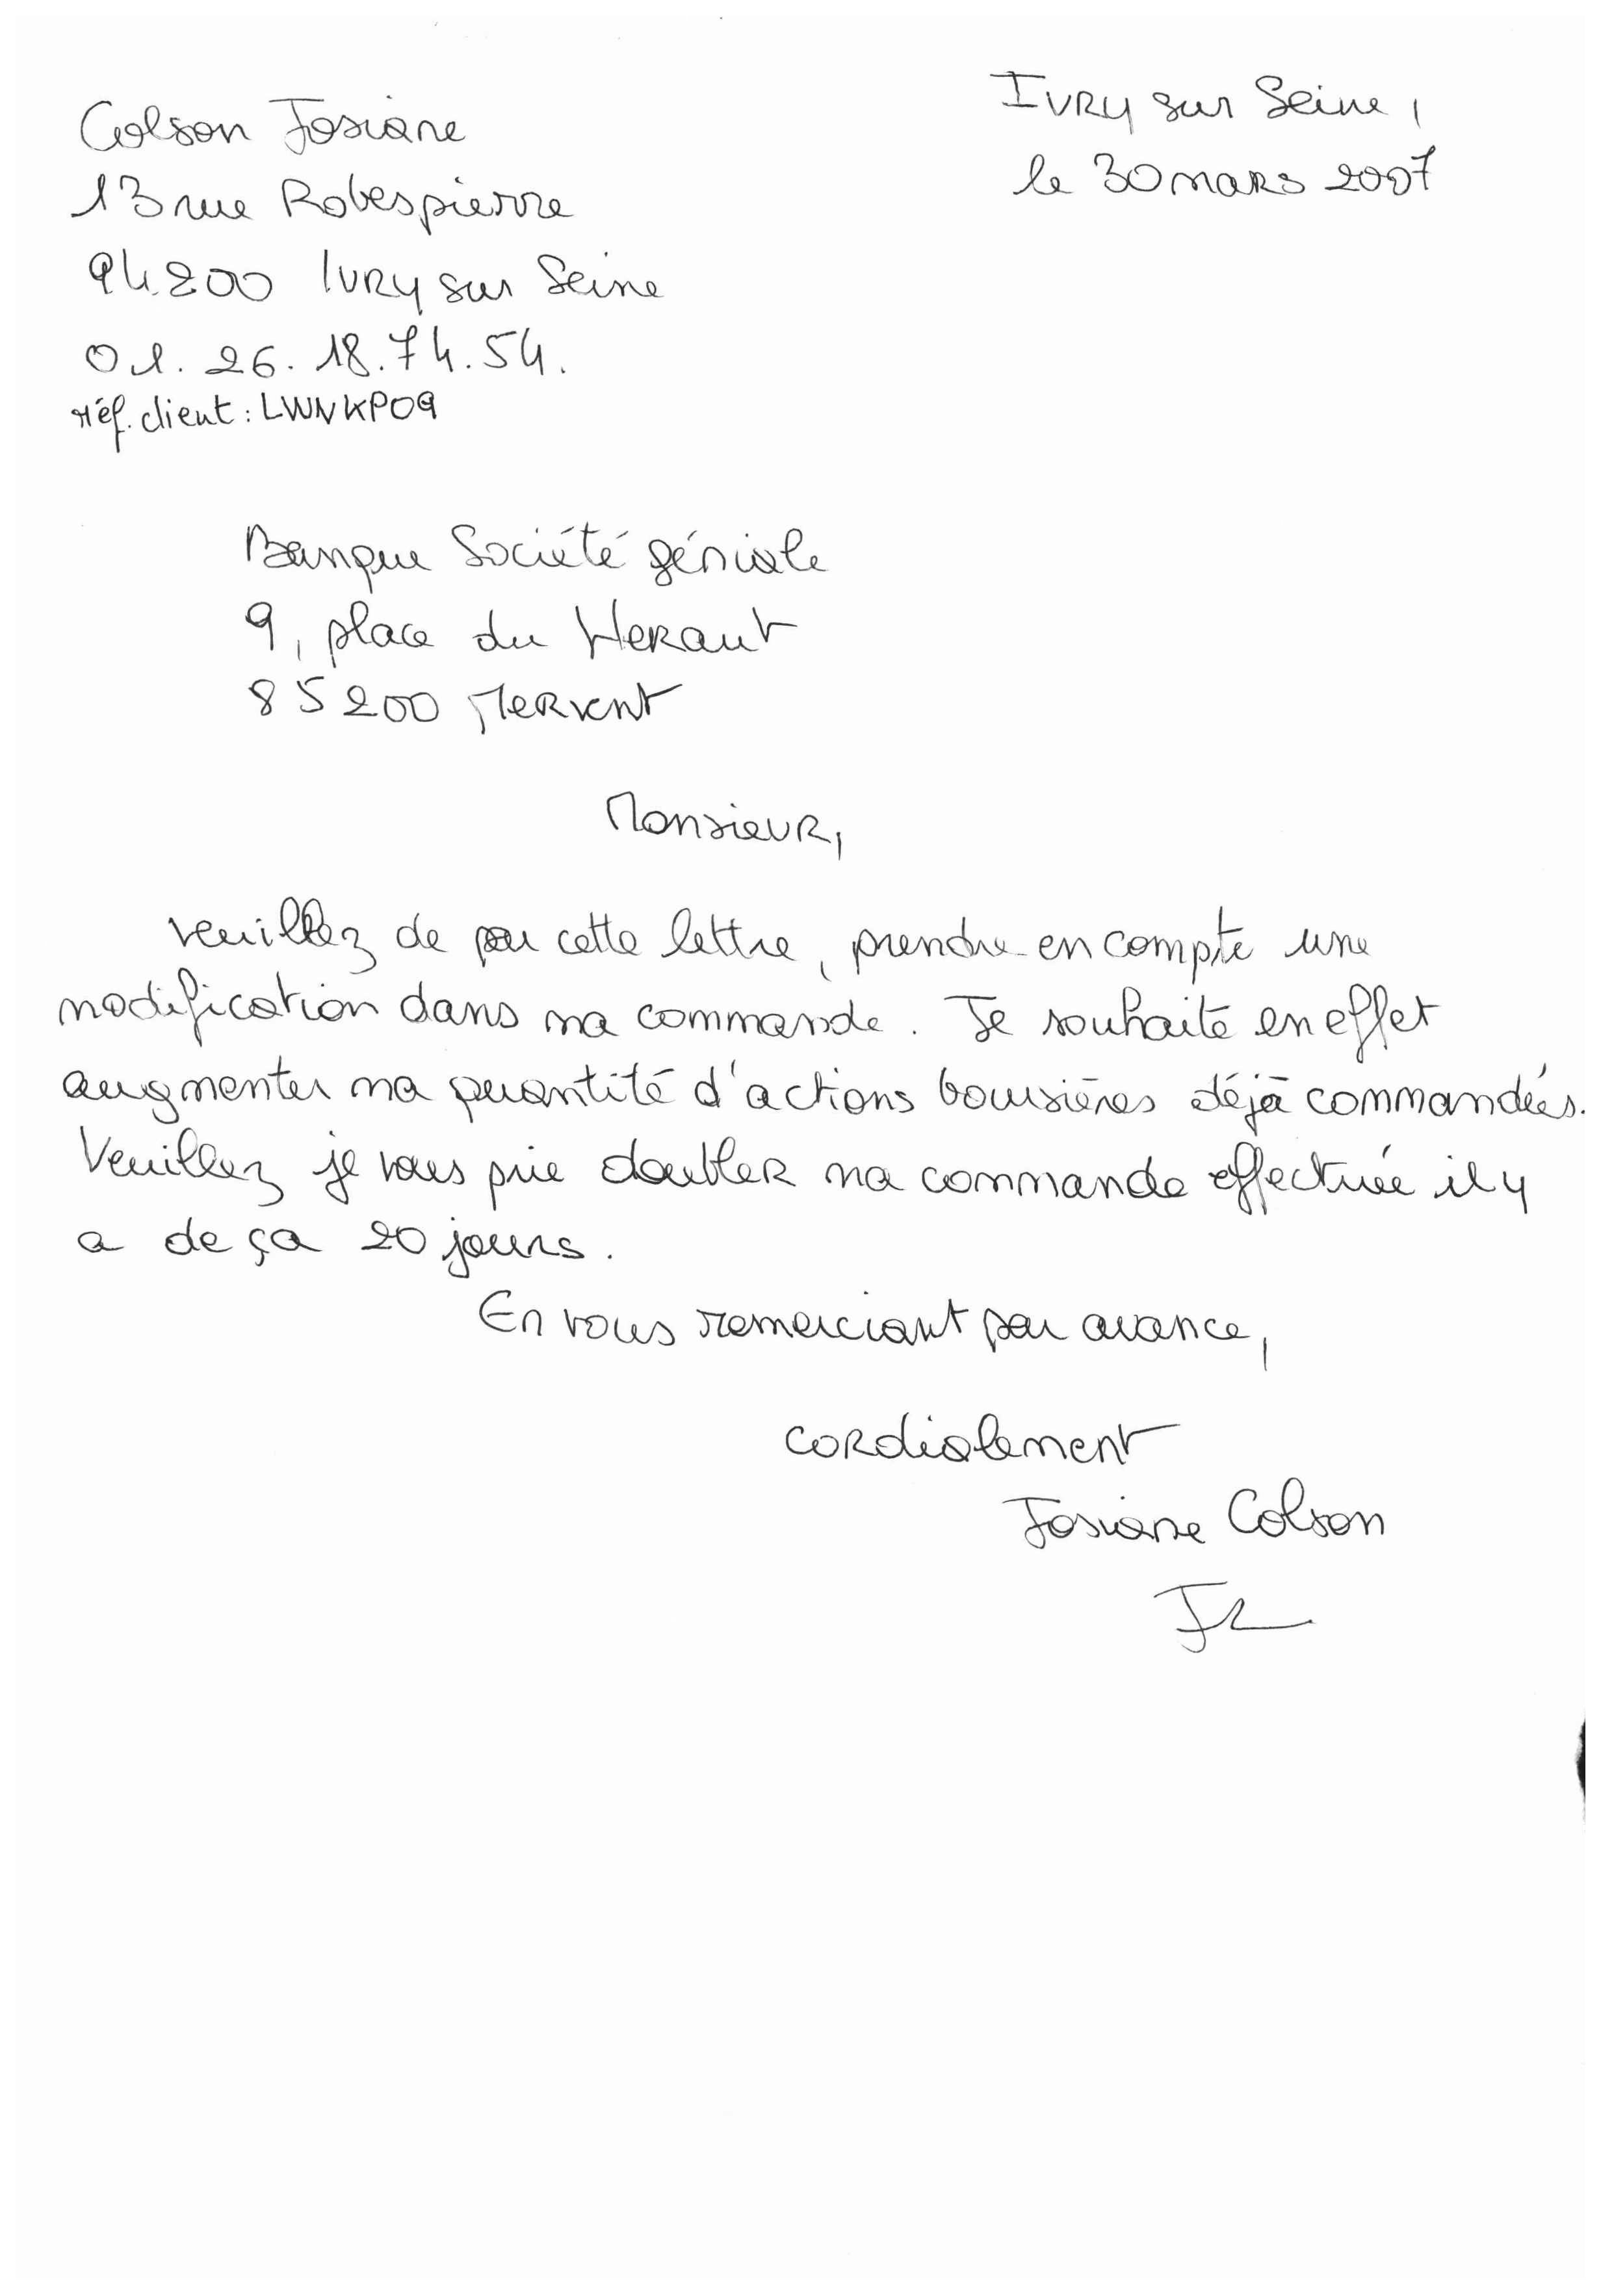 Colson Josiane
13 rue Robespierre
94200 Ivry sur Seine
01.26.18.74.54.
réf. client : LWNKP09
Ivry sur Seine,
le 30 mars 2007
Banque Société géniale
9, place du Heraut
85200 Mervent
Monsieur,
veuillez de par cette lettre, prendre en compte une
modification dans ma commande. Je souhaite en effet
augmenter ma quantité d'actions boursières déjà commandées.
Veuillez je vous prie doubler ma commande effectuée il y
a de ça 20 jours.
En vous remerciant par avance,
cordialement
Josiane Colson